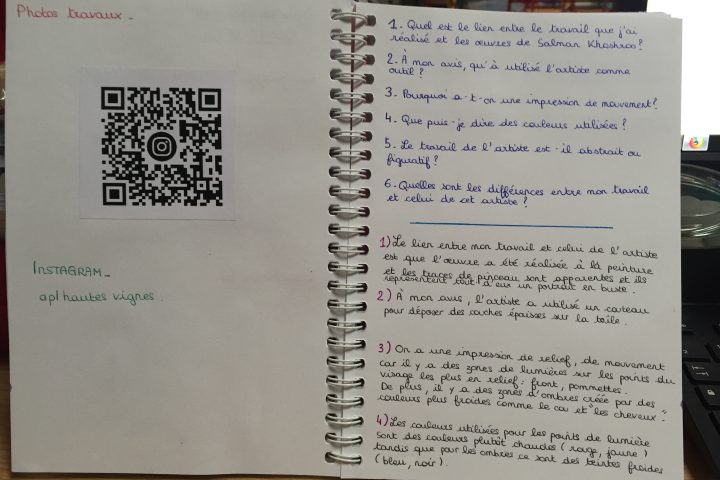 Photos travaux -
INSTAGRAM -
apl hautes vignes.
1. Quel est le lien entre le travail que j'ai
réalisé et les œuvres de Salman Khoshroo ?
2. À mon avis, qu'à utilisé l'artiste comme
outil ?
3. Pourquoi a-t-on une impression de mouvement ?
4. Que puis-je dire des couleurs utilisées ?
5. Le travail de l'artiste est-il abstrait ou
figuratif ?
6. Quelles sont les différences entre mon travail
et celui de cet artiste ?
1) Le lien entre mon travail et celui de l'artiste
est que l'œuvre a été réalisée à la peinture
et les traces de pinceau sont apparentes et ils
représentent tout d'eux un portrait en buste.
2) À mon avis, l'artiste a utilisé un couteau
pour déposer des couches épaisses sur la toile.
3) On a une impression de relief, de mouvement
car il y a des zones de lumières sur les points du
visage les plus en relief : front, pommettes.
De plus, il y a des zones d'ombres créée par des
couleurs plus froides comme le cou et les cheveux.
4) Les couleurs utilisées pour les points de lumière
sont des couleurs plutôt chaudes (rouge, jaune)
tandis que pour les ombres ce sont des teintes froides
(bleu, noir).